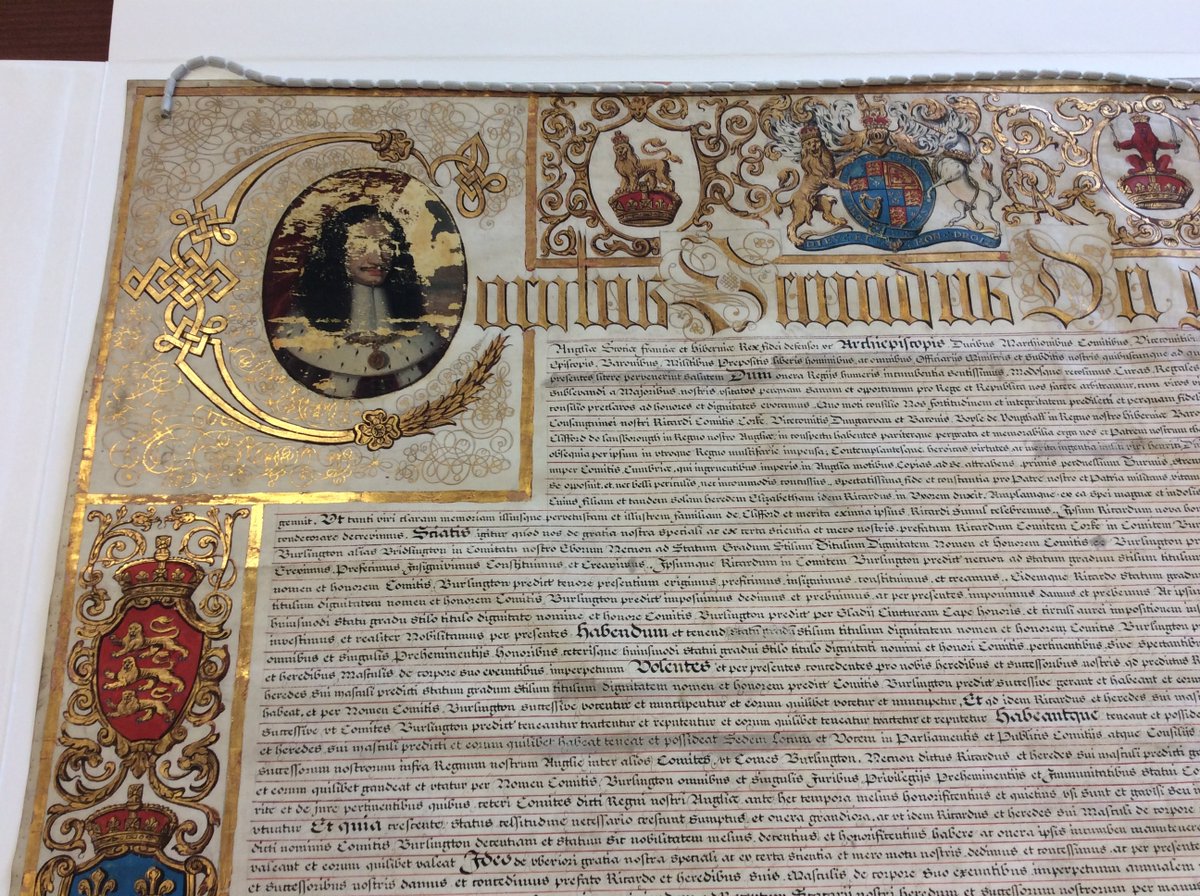 DIEV ET MON DROIT
Carolus Secundus Dei
Angliæ Scotiæ franciæ et hiberniæ Rex fidei defensor &c Archiepiscopis Ducibus Marchionibus Comitibus Vicecomitibus
Episcopis, Baronibus, Militibus Prepositis liberis hominibus, ac omnibus Officiariis Ministris et Subditis nostris quibuscunque ad
presentes litere pervenerint Salutem Cum onera Regiis humeris incumbentia sentissimus, Curas Regales
Sublevandi a Majoribus nostris usitatos Sanum et opportunum pro Rege et Republica nos fate arbitramur, cum viros
consilio preclaros ad honores et dignitates evocamus, Quo moti consilio Nos fortitudinem et integritatem predilecti et perquam fidelis
Consanguinei nostri Ricardi Comitis Corke Vicecomitis Dungarvan et Baronis Boyle de Youghall in Regno nostro hiberniæ
Clifford de Lansborough in Regno nostro Angliæ, in conspectu habentes pariterque pergrata et memorabilia erga nos et Patrem nostrum
obsequia per ipsum in utroque Regno multifarie impensa, Contemplantesque heroinas virtutes, ac merita ingentia
nuper Comitis Cumbriæ, qui ingruentibus imperio in Anglia motibus Copias ad se attrahens primis perduellium Turmis
se opposuit, et nec belli periculis, nec incommodis concussus, Spectatissima fide et constantia pro Patre nostro et Patria militans
Cuius filiam et tandem solam heredem Elizabetham idem Ricardus in Uxorem duxit, Amplamque ex ea spei magne et indolis
genuit, Ut tanti viri claram memoriam illiusque pervetustam et illustrem familiam de Clifford et merita eximia ipsius Ricardi Simul celebremus, Ipsum Ricardum nova
condecorare decrevimus, Sciatis igitur quod nos de gratia nostra speciali ac ex certa scientia et mero motu nostris, prefatum Ricardum Comitem Corke in Comitem
Burlington alias Bridlington in Comitatu nostro Eborum Necnon ad Statum Gradum Stilum Titulum Dignitatem Nomen et Honorem Comitis de Burlington
Ereximus, Prefecimus Insignivimus Constituimus, et Creavimus, Ipsumque Ricardum in Comitem Burlington predict necnon ad statum gradum stilum titulum
nomen et honorem Comitis, Burlington predict tenore presentium erigimus, preficimus, insignimus, constituimus, et creamus, Eidemque Ricardo Statum gradum
titulum dignitatem nomen et honorem Comitis Burlington predict imposuimus dedimus et prebuimus, ac per presentes, imponimus damus et prebemus, Ac ipsum
huiusmodi statu gradu stilo titulo dignitate nomine et honore Comitis Burlington predict per Gladii Cincturam Cape honoris, et circuli aurei impositionem
investimus et realiter Nobilitamus per presentes Habendum et tenend statu gradu stilum titulum dignitatem nomen et honorem Comitis Burlington
omnibus et singulis Preheminentiis Honoribus, ceterisque huiusmodi statui gradui stilo titulo dignitati nomini et honori Comitis, pertinentibus, sive
et heredibus, Masculis de corpore suo exeuntibus, imperpetuum Volentes et per presentes concedentes pro nobis heredibus et successoribus nostris qd predictus
heredes, sui masculi predicti statum gradum stilum titulum dignitatem nomen et honorem predict Comitis, Burlington predict successive gerant et habeant et
habeat, et per Nomen Comitis, Burlington successive, vocentur et nuncupentur et eorum quilibet vocetur et nuncupetur, Et qd idem Ricardus et heredes sui
Successive, ut Comites Burlington predict teneantur tractentur et reputentur et eorum quilibet teneatur tractetur et reputetur Habeantque teneant et
et heredes, sui masculi predicti et eorum quilibet habeat teneat et possideat Sedem Locum et Vocem in Parliamentis et Publicis Comitiis atque Consiliis
successorum nostrorum infra Regnum nostrum Angliæ inter alios Comites ut Comes Burlington, Necnon dictus Ricardus et heredes sui masculi predicti
et eorum quilibet gaudeat et utatur per Nomen Comitis, Burlington omnibus et singulis Juribus, Privilegiis Preheminentiis et Immunitatibus statui
rite et de jure pertinentibus quibus, ceteri Comites dicti Regni nostri Angliæ ante hec tempora melius honorificentius et quietius usi sunt et gavisi
utuntur Et quia crescente, status celsitudine necessario crescunt sumptus, et onera grandiora, ac ut idem Ricardus et heredes sui Masculi de corpore
dicti nominis Comitis, Burlington decentiam et statum sic nobilitatem melius, decentius, et honorificentius habere ac onera ipsis incumben
valeant et eorum quilibet valeat Ideo de uberiori gratia nostra speciali ac ex certa scientia et mero motu nostris, dedimus et concessimus, ac per presentes
et Successoribus nostris damus et concedimus prefato Ricardo et heredibus suis, Masculis, de corpore suo exeuntibus, imperpetuum